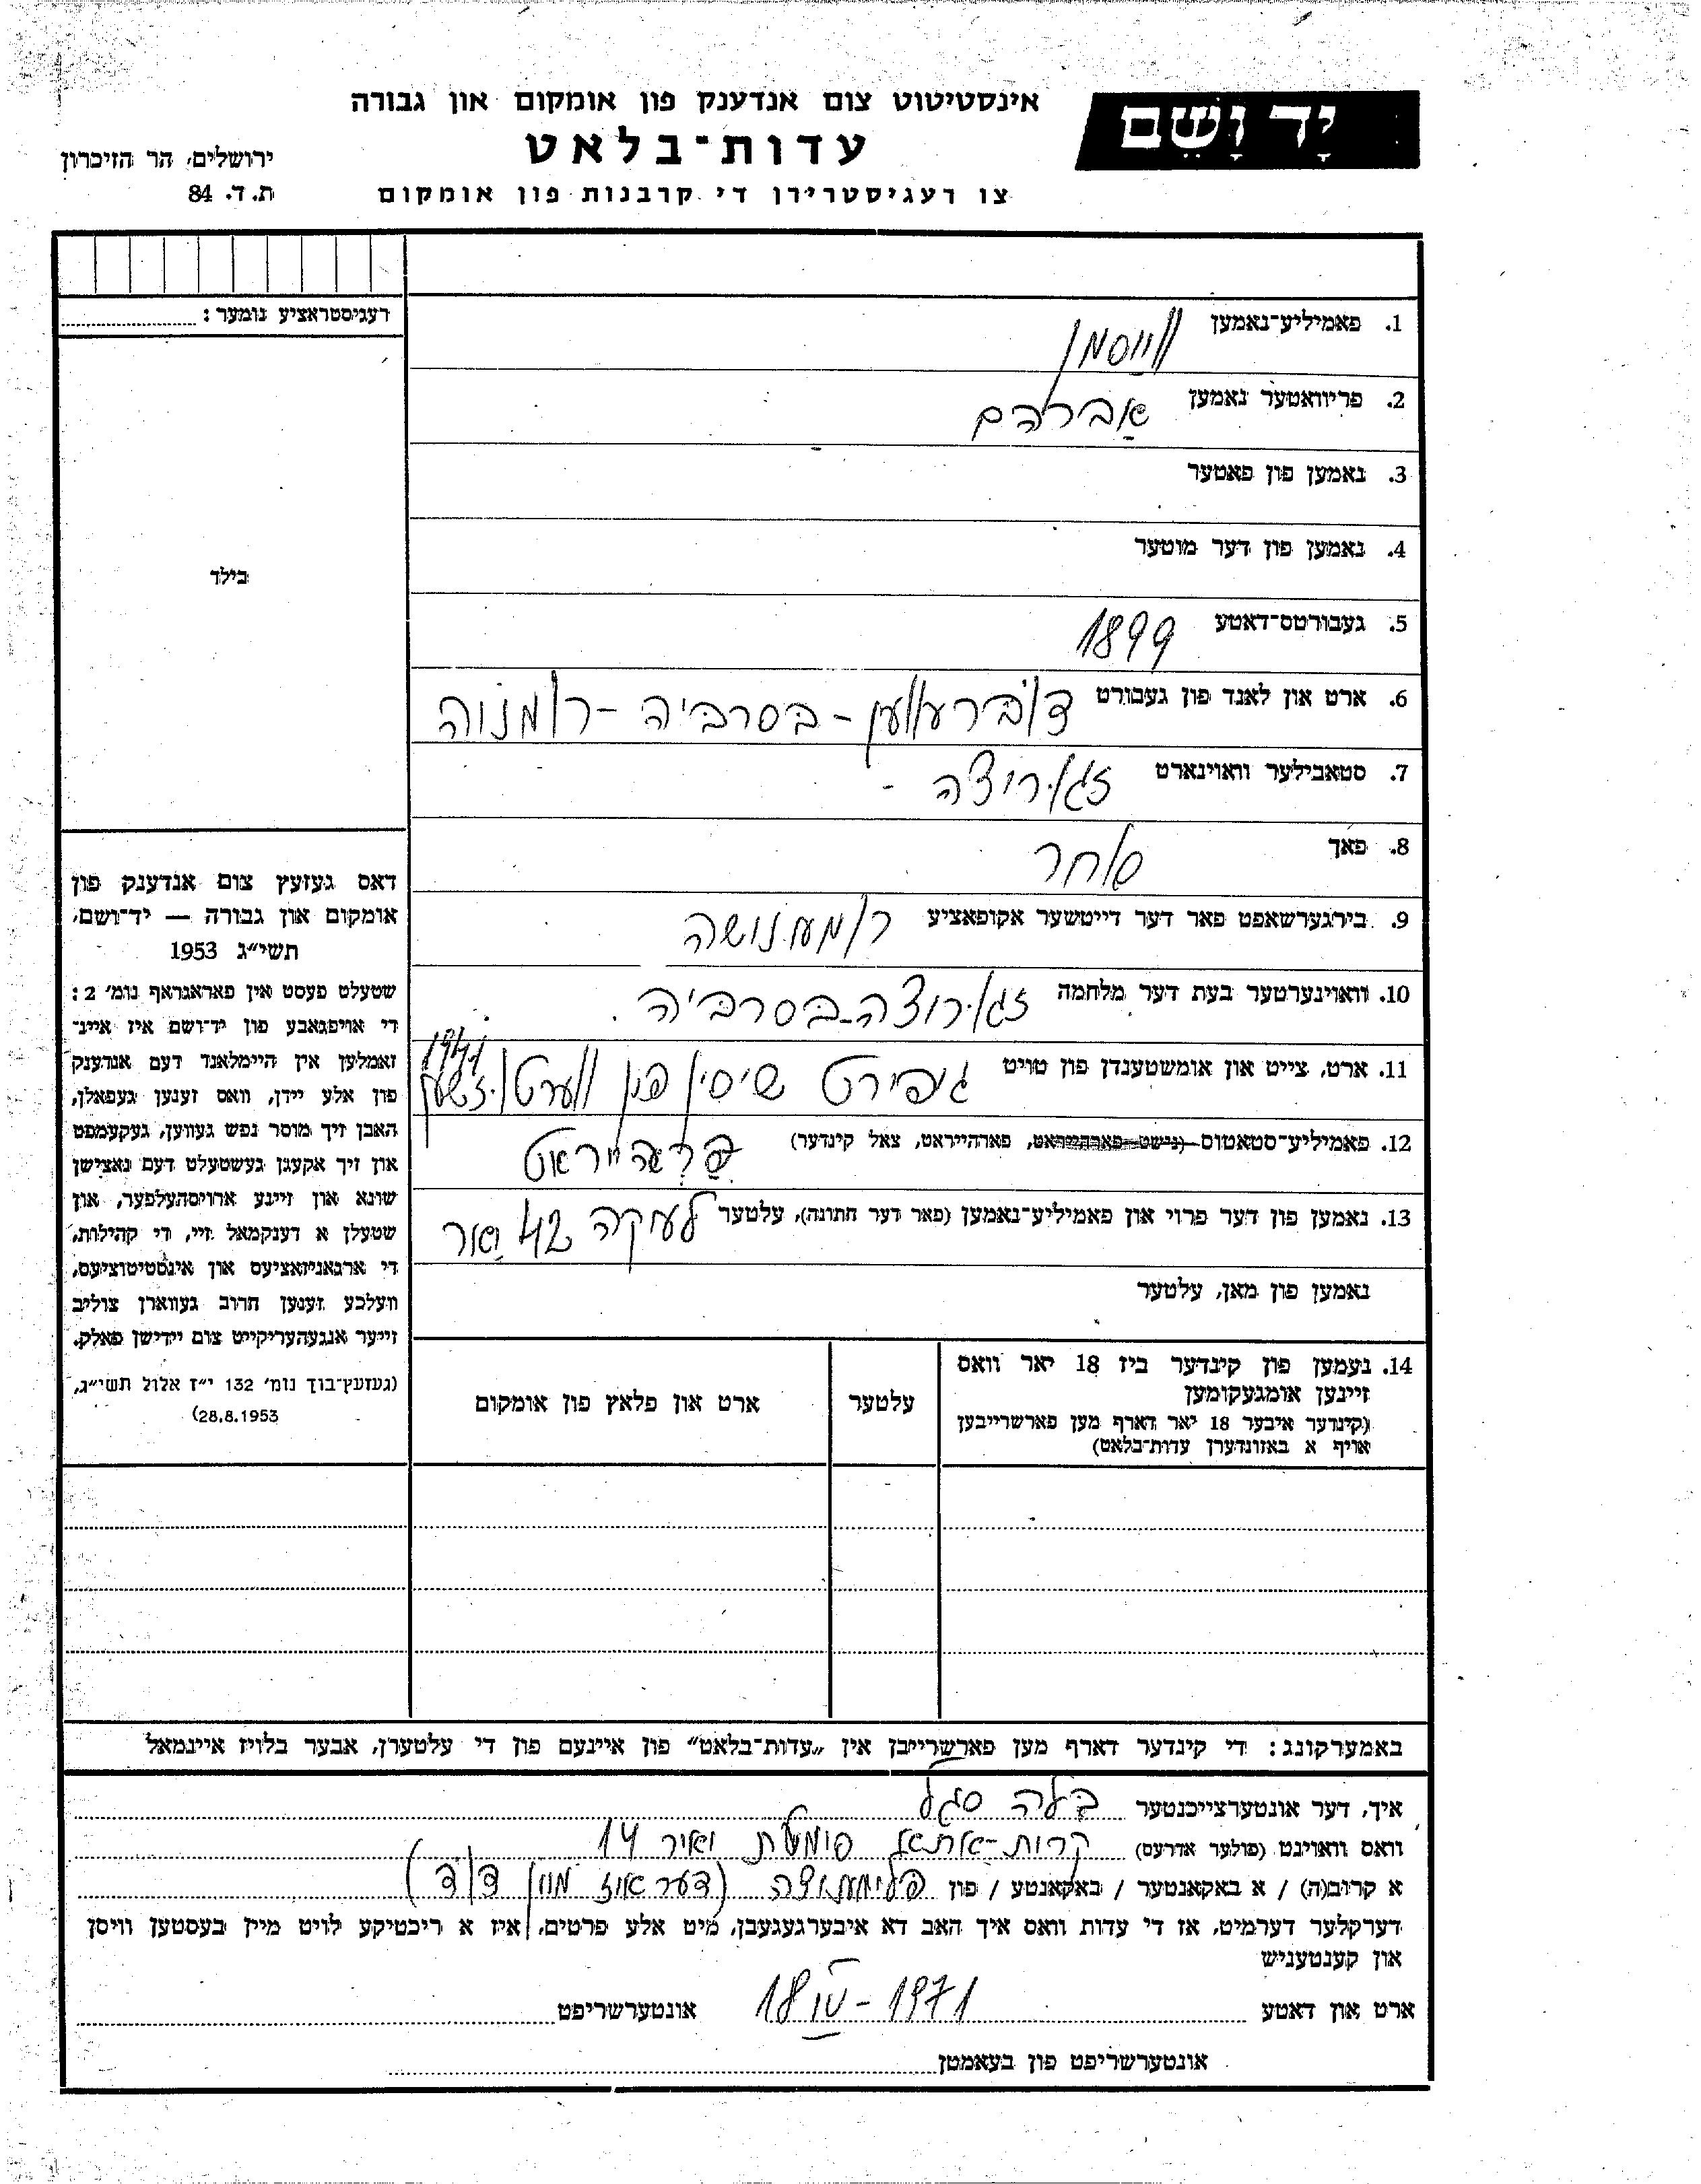 יָד וָשֵׁם
אינסטיטוט צום אנדענק פון אומקום און גבורה
עדות־בלאט
צו רעגיסטרירן די קרבנות פון אומקום
ירושלים, הר הזיכרון
ת. ד. 84
רעגיסטראציע נומער:
בילד
דאס געזעץ צום אנדענק פון
אומקום און גבורה — יד־ושם,
תשי״ג 1953
שטעלט פעסט אין פאראגראף נומ׳ 2:
די אויפגאבע פון יד־ושם איז איינ־
זאמלען אין היימלאנד דעם אנדענק
פון אלע יידן, וואס זענען געפאלן,
האבן זיך מוסר נפש געווען, געקעמפט
און זיך אקעגן געשטעלט דעם נאצישן
שונא און זיינע ארויסהעלפער, און
שטעלן א דענקמאל זיי, די קהילות,
די ארגאניזאציעס און אינסטיטוציעס,
וועלכע זענען חרוב געווארן צוליב
זייער אנגעהעריקייט צום יידישן פאלק.
(געזעץ־בוך נומ׳ 132 י״ז אלול תשי״ג,
28.8.1953)
1. פאמיליע־נאמען ווייסמן
2. פריוואטער נאמען אַברהם
3. נאמען פון פאטער
4. נאמען פון דער מוטער
5. געבורטס־דאטע 1899
6. ארט און לאנד פון געבורט דוברעווען - בסרביה - רומנוה
7. סטאבילער וואוינארט זגוריצה -
8. פאך סוחר
9. בירגערשאפט פאר דער דייטשער אקופאציע
10. וואוינערטער בעת דער מלחמה זגורוצה - בסרביה
11. ארט, צייט און אומשטענדן פון טויט 1941
12. פאמיליע־סטאטוס (נישט פארהייראט, פארהייראט, צאל קינדער)
13. נאמען פון דער פרוי און פאמיליע־נאמען (פאר דער חתונה), עלטער 42 יאָר
נאמען פון מאן, עלטער
14. נעמען פון קינדער ביז 18 יאר וואס
זיינען אומגעקומען
(קינדער איבער 18 יאר דארף מען פארשרייבן
אויף א באזונדערן עדות־בלאט)
עלטער
ארט און פלאץ פון אומקום
באמערקונג: די קינדער דארף מען פארשרייבן אין „עדות־בלאט״ פון איינעם פון די עלטערן, אבער בלויז איינמאל
איך, דער אונטערצייכנטער בלה סגל
וואס וואוינט (פולער אדרעס) קרית-אתא 14
א קרוב(ה) / א באקאנטער / באקאנטע / פון פלימעניצה (דער איז מיין דוד)
דערקלער דערמיט, אז די עדות וואס איך האב דא איבערגעגעבן, מיט אלע פרטים, איז א ריכטיקע לויט מיין בעסטען וויסן
און קענטעניש
ארט און דאטע 18 IV - 1971 אונטערשריפט
אונטערשריפט פון בעאמטן